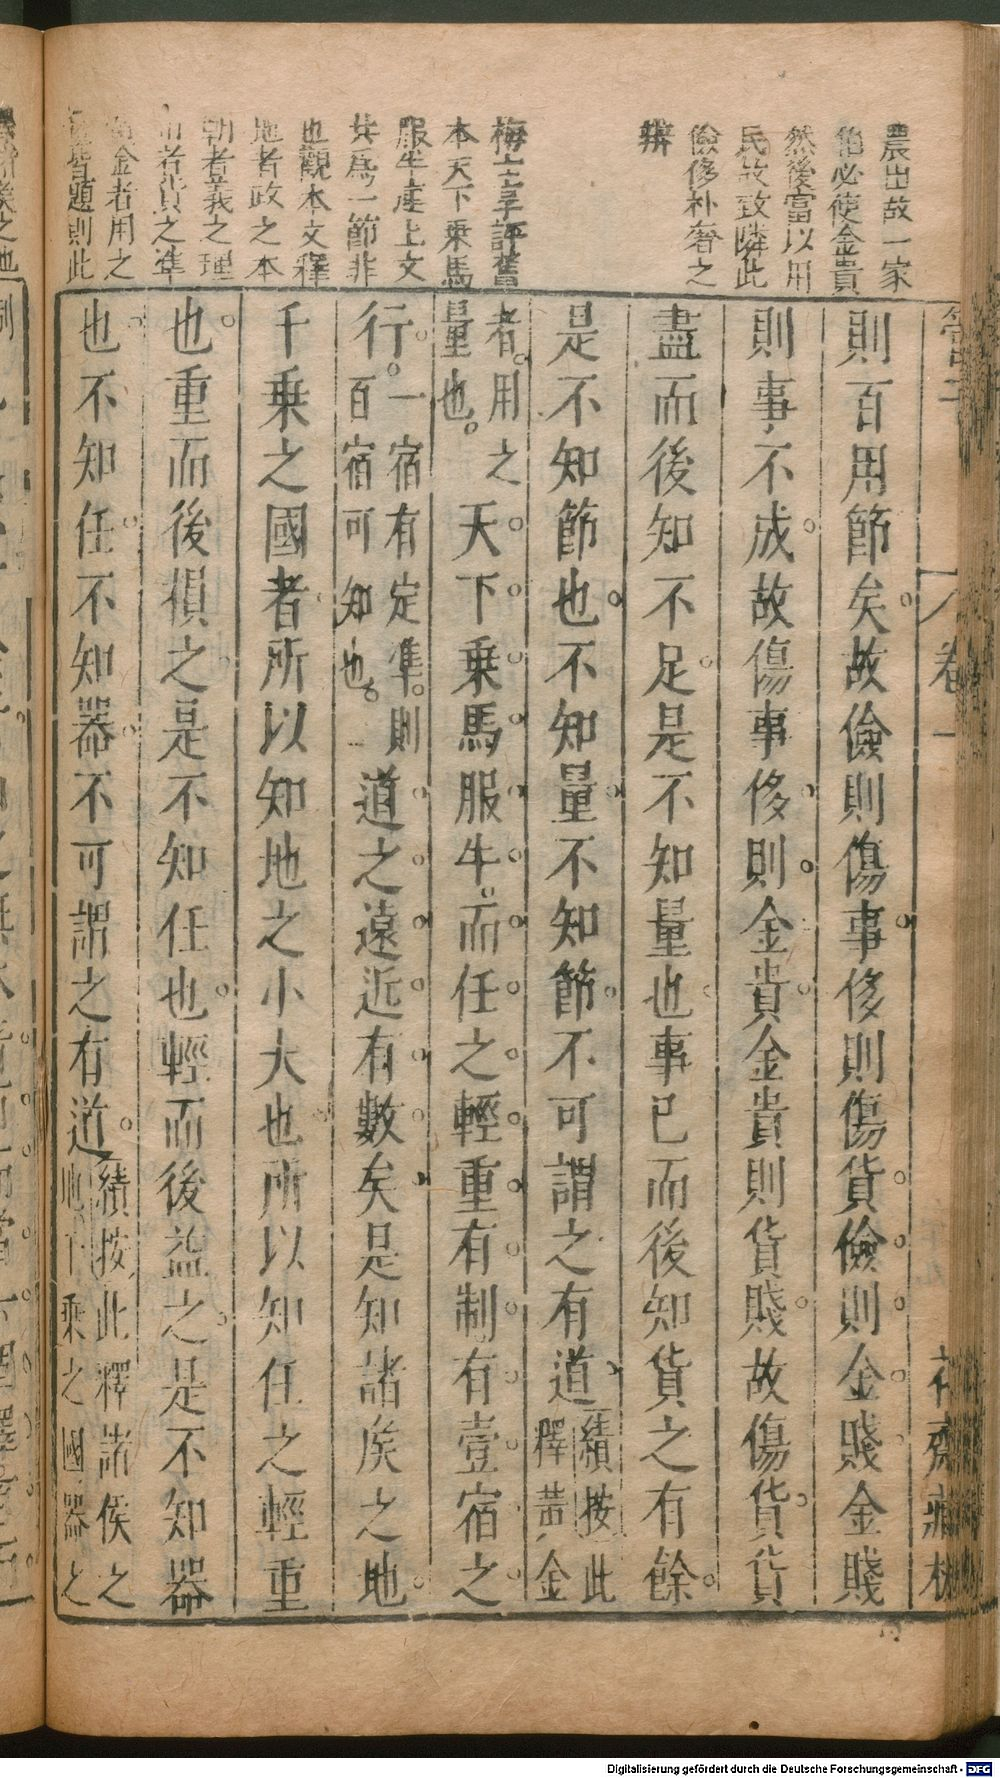 農出故一家
必使金貴
然後富以用
民故致隣此
儉侈朴奢之
辨
梅士享評舊
本天下乘馬
服牛產上文
共爲一節非
也觀本文釋
地者政之本
朝者義之理
市者貨之凖
黃金者用之
則此
管子
卷一
則百用節矣故儉則傷事侈則傷貨儉則金賤金賤
則事不成故傷事侈則金貴金貴則貨賤故傷貨貨
盡而後知不足是不知量也事已而後知貨之有餘
是不知節也不知量不知節不可謂之有道
績按此
釋黃金
者用之
量也
天下乘馬服牛而任之輕重有制有壹宿之
行
一宿有定凖則
百宿可知也
道之遠近有數矣是知諸矦之地
千乘之國者所以知地之小大也所以知任之輕重
也重而後損之是不知任也輕而後益之是不知器
也不知任不知器不可謂之有道
績按此釋諸侯之
地千乘之國器之
Digitalisierung gefördert durch die Deutsche Forschungsgemeinschaft - DFG